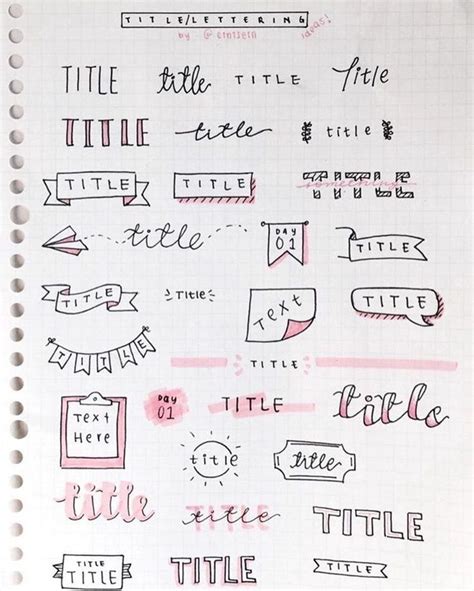 TITLE/LETTERING
ideas!
by @
TITLE title TITLE title
TITLE title title
TITLE TITLE TITLE
something
title DAY 01 TITLE
TITLE TITLE Text TITLE
TITLE
TITLE
Text Here Day 01 TITLE title
title title
title title TITLE
TITLE TITLE TITLE TITLE